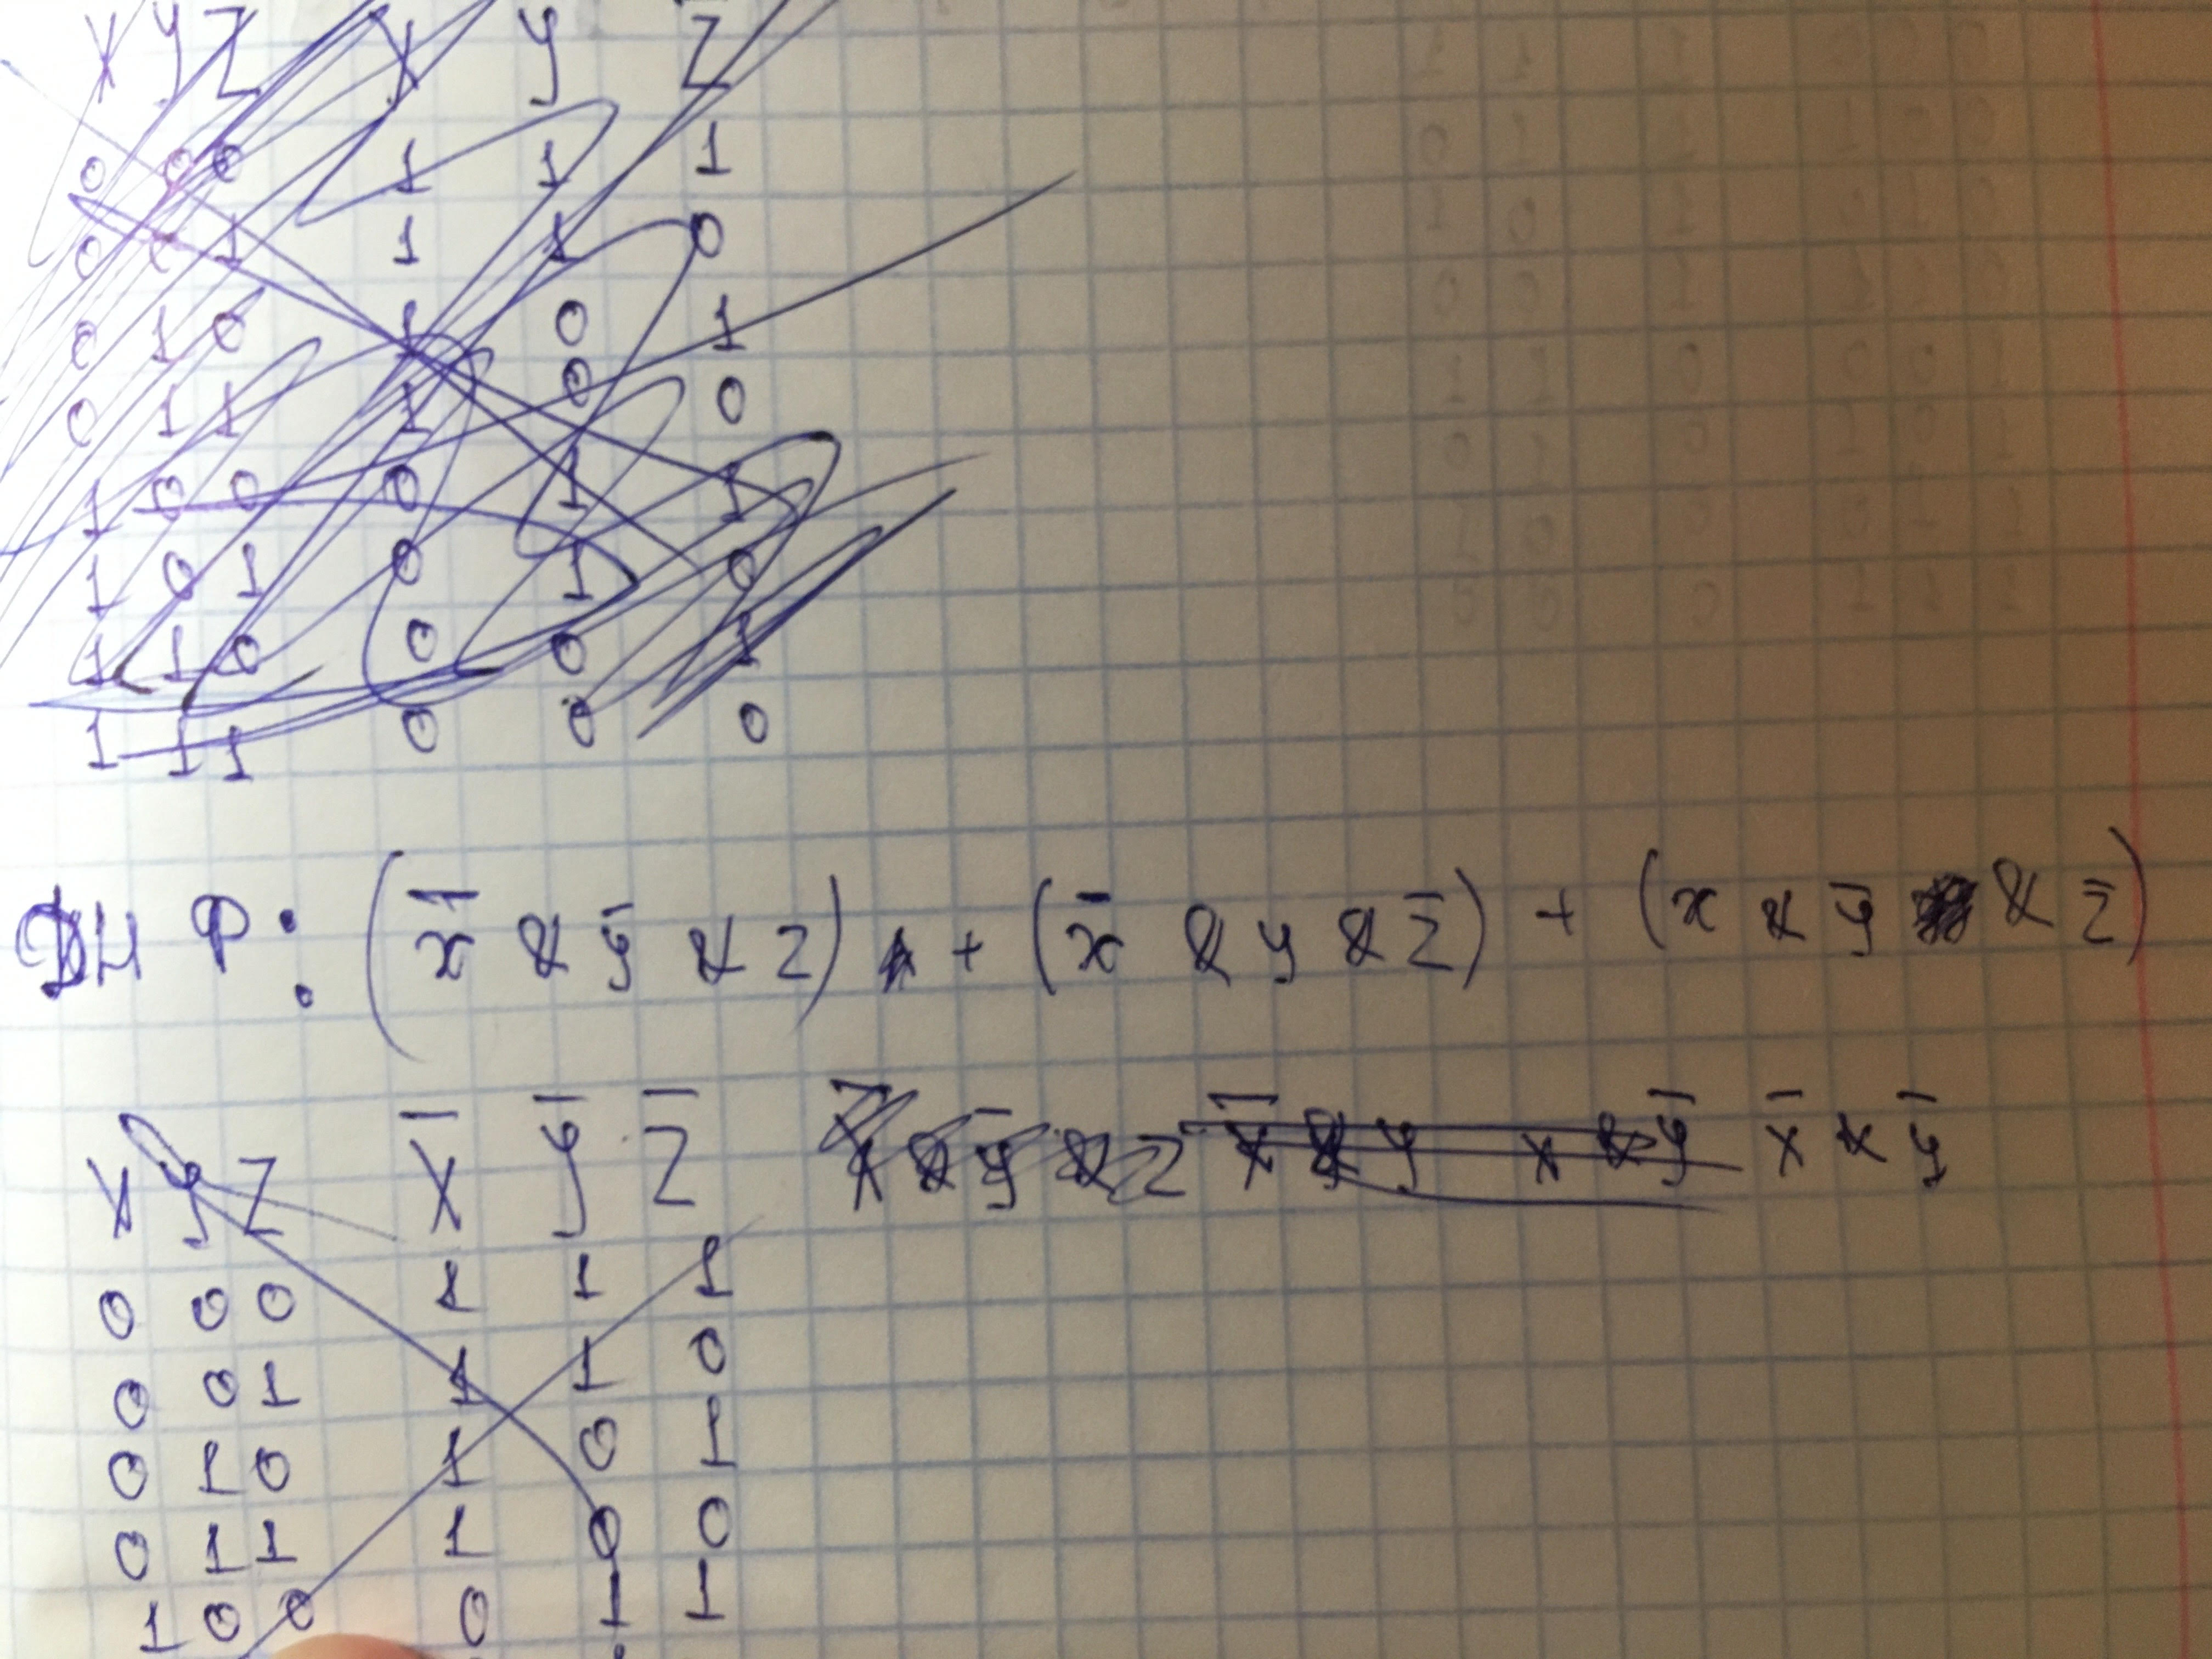 x y z x y z̅
0 0 0 1 1 1
0 0 1 1 1 0
0 1 0 1 0 1
0 1 1 1 0 0
1 0 0 0 1 1
1 0 1 0 1 0
1 1 0 0 0 1
1 1 1 0 0 0
ДНФ: (x̅ & y̅ & z) + (x̅ & y & z̅) + (x & y̅ & z̅)
x y z x̅ y̅ z̅ x & y̅ & z x̅ & y x & y̅ x̅ & y̅
0 0 0 1 1 1
0 0 1 1 1 0
0 1 0 1 0 1
0 1 1 1 0 0
1 0 0 0 1 1